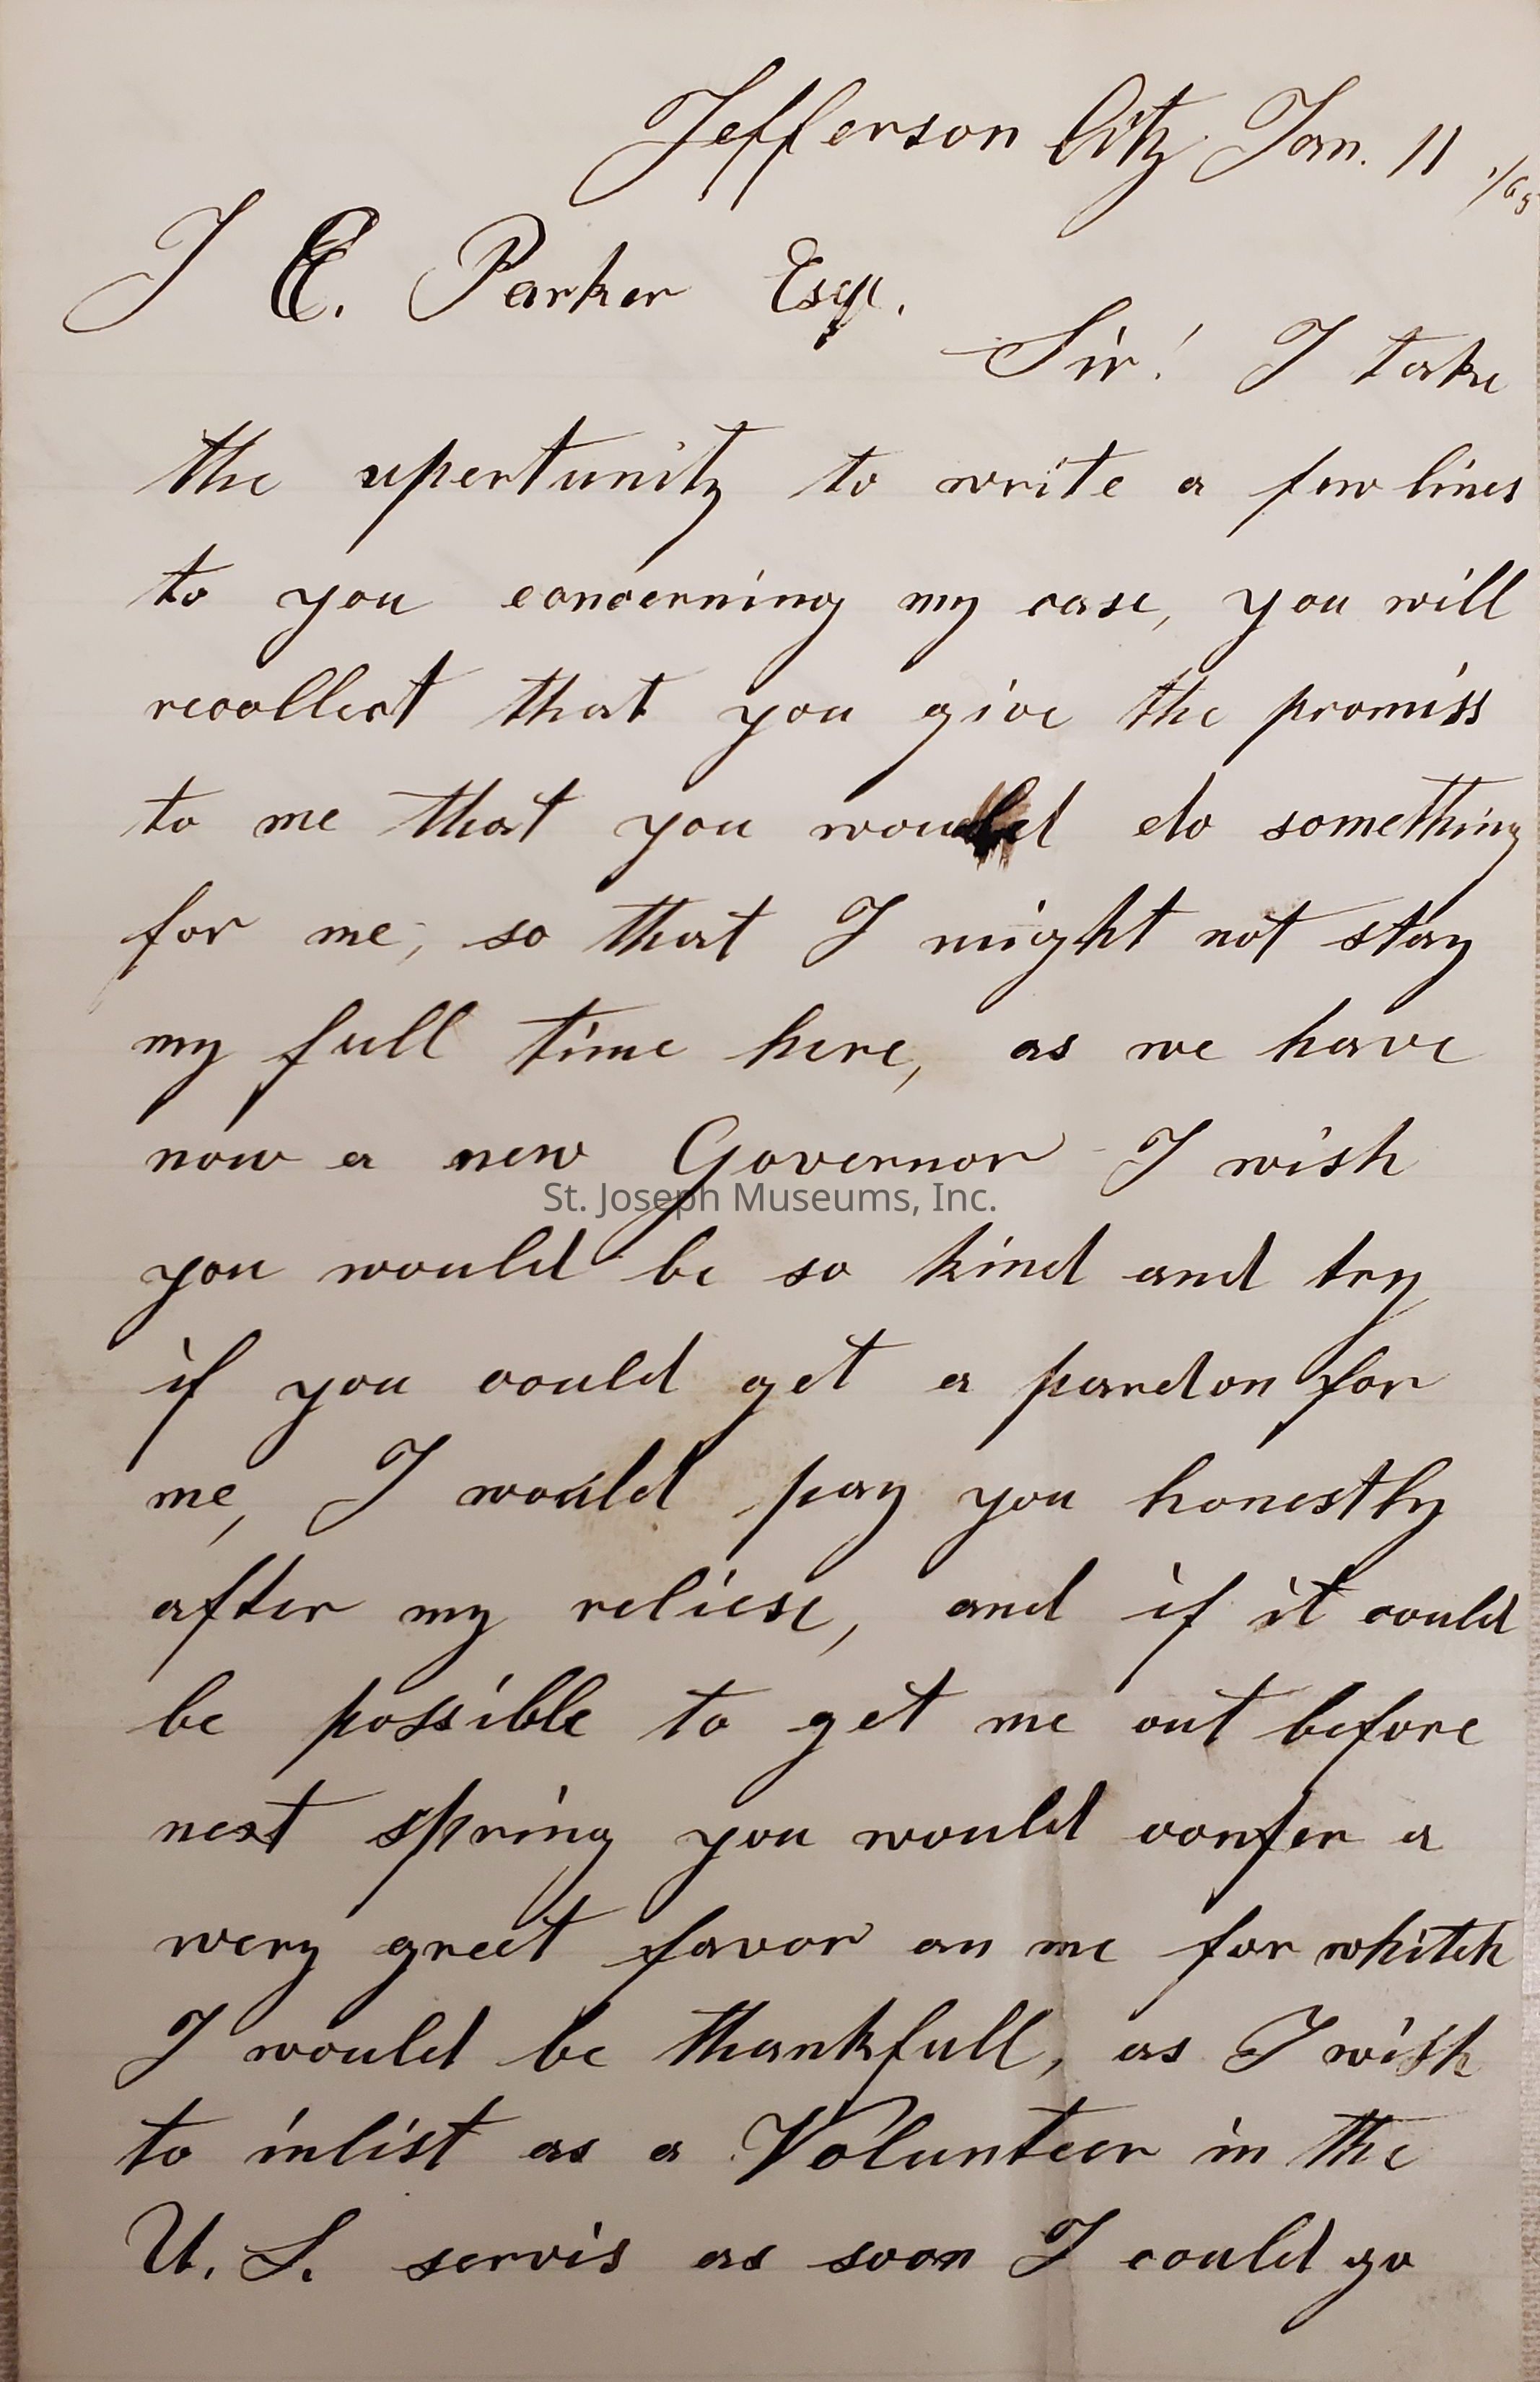 Jefferson City Jan. 11 1/65
J E. Parker Esq.
Sir! I take
the upertunity to write a few lines
to you concerning my case, you will
recollect that you give the promiss
to me that you would do something
for me, so that I might not stay
my full time here, as we have
now a new Governor I wish
St. Joseph Museums, Inc.
you would be so kind and try
if you could get a pardon for
me, I would pay you honestly
after my reliese, and if it could
be possible to get me out before
next spring you would confer a
wery greet favor on me for whitch
I would be thankfull, as I wish
to inlist as a Volunteer in the
U. S. servis as soon I could go